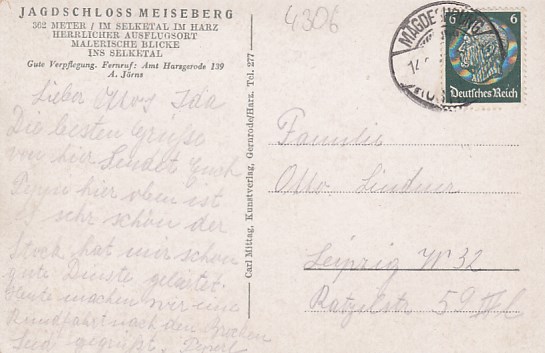 JAGDSCHLOSS MEISEBERG
362 METER / IM SELKETAL IM HARZ
HERRLICHER AUSFLUGSORT
MALERISCHE BLICKE
INS SELKETAL
Gute Verpflegung. Fernruf: Amt Harzgerode 139
A. Jörns
Lieber Otto, Ida
Die besten Grüße
von hier sendet Euch
hier oben ist
es sehr schön der
Stock hat mir schon
gute Dienste geleistet.
Heute machen wir eine
Rundfahrt nach den
Seid gegrüßt
Carl Mittag, Kunstverlag, Gernrode/Harz. Tel. 277
4306
MAGDEBURG
14
6 6
Deutsches Reich
Familie
Otto Lindner
Leipzig W 32
Ratzelstr 59 III l